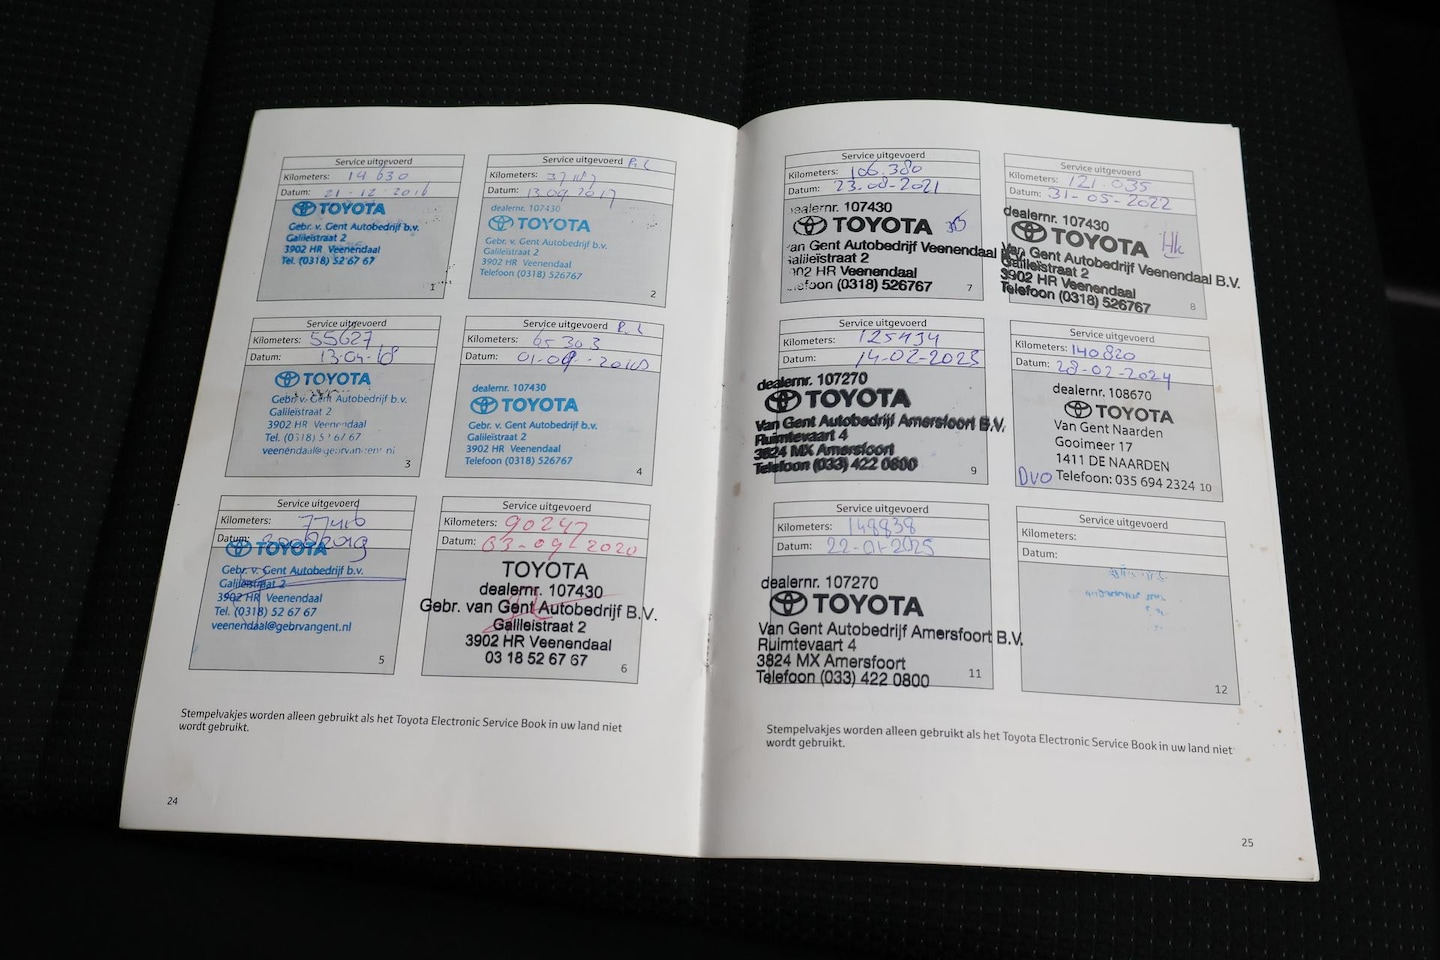 Service uitgevoerd
Kilometers: 14 630
Datum: 21-12-2016
TOYOTA
Gebr. v. Gent Autobedrijf b.v.
Galileïstraat 2
3902 HR Veenendaal
Tel. (0318) 52 67 67
1
Service uitgevoerd
Kilometers:
Datum: 13.09.2017
dealernr. 107430
TOYOTA
Gebr. v. Gent Autobedrijf b.v.
Galileïstraat 2
3902 HR Veenendaal
Telefoon (0318) 526767
2
Service uitgevoerd
Kilometers: 55627
Datum: 13-04-18
TOYOTA
Gebr. v. Gent Autobedrijf b.v.
Galileïstraat 2
3902 HR Veenendaal
Tel. (0318) 52 67 67
veenendaal@gebrvangent.nl
3
Service uitgevoerd
Kilometers: 65 303
Datum:
dealernr. 107430
TOYOTA
Gebr. v. Gent Autobedrijf b.v.
Galileïstraat 2
3902 HR Veenendaal
Telefoon (0318) 526767
4
Service uitgevoerd
Kilometers: 77416
Datum:
TOYOTA
Gebr. v. Gent Autobedrijf b.v.
Galileïstraat 2
3902 HR Veenendaal
Tel. (0318) 52 67 67
veenendaal@gebrvangent.nl
5
Service uitgevoerd
Kilometers: 90247
Datum: 03-09-2020
TOYOTA
dealernr. 107430
Gebr. van Gent Autobedrijf B.V.
Galileistraat 2
3902 HR Veenendaal
03 18 52 67 67
6
Stempelvakjes worden alleen gebruikt als het Toyota Electronic Service Book in uw land niet
wordt gebruikt.
24
Service uitgevoerd
Kilometers: 106.380
Datum: 23-08-2021
dealernr. 107430
TOYOTA
van Gent Autobedrijf Veenendaal
Galileïstraat 2
3902 HR Veenendaal
Telefoon (0318) 526767
7
Service uitgevoerd
Kilometers: 121.035
Datum: 31-05-2022
dealernr. 107430
TOYOTA
Van Gent Autobedrijf Veenendaal B.V.
Galileïstraat 2
3902 HR Veenendaal
Telefoon (0318) 526767
8
Service uitgevoerd
Kilometers: 125434
Datum: 14-02-2023
dealernr. 107270
TOYOTA
Van Gent Autobedrijf Amersfoort B.V.
Ruimtevaart 4
3824 MX Amersfoort
Telefoon (033) 422 0800
9
Service uitgevoerd
Kilometers: 140820
Datum: 28-02-2024
dealernr. 108670
TOYOTA
Van Gent Naarden
Gooimeer 17
1411 DE NAARDEN
DVO Telefoon: 035 694 2324 10
Service uitgevoerd
Kilometers: 148838
Datum: 22-01-2025
dealernr. 107270
TOYOTA
Van Gent Autobedrijf Amersfoort B.V.
Ruimtevaart 4
3824 MX Amersfoort
Telefoon (033) 422 0800
11
Service uitgevoerd
Kilometers:
Datum:
12
Stempelvakjes worden alleen gebruikt als het Toyota Electronic Service Book in uw land niet
wordt gebruikt.
25